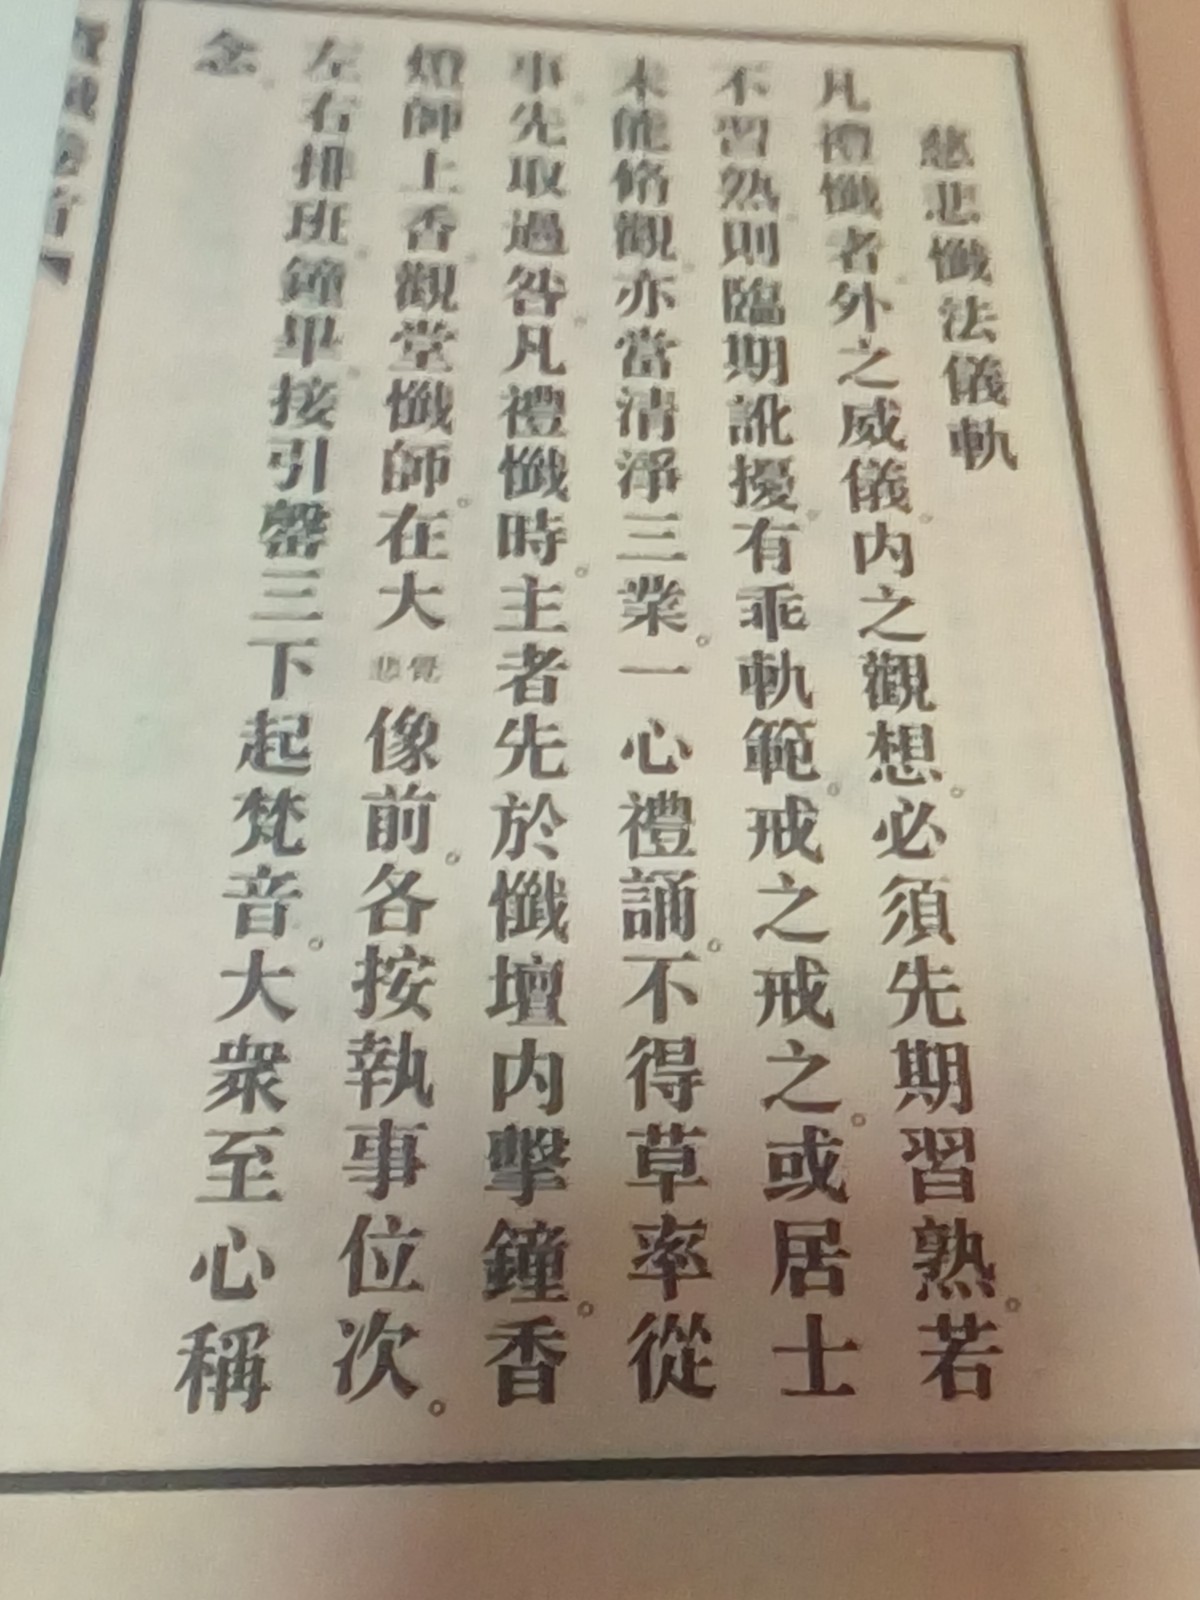 慈悲懺法儀軌
凡禮懺者。外之威儀。内之觀想。必須先期習熟。若
不習熟。則臨期訛擾。有乖軌範。戒之戒之。或居士
未能脩觀。亦當清淨三業。一心禮誦。不得草率從
事。先取過咎。凡禮懺時。主者先於懺壇内擊鐘。香
燈師上香。觀堂懺師。在大覺悲像前。各按執事位次。
左右排班。鐘畢。接引罄三下起梵音。大衆至心稱
念。